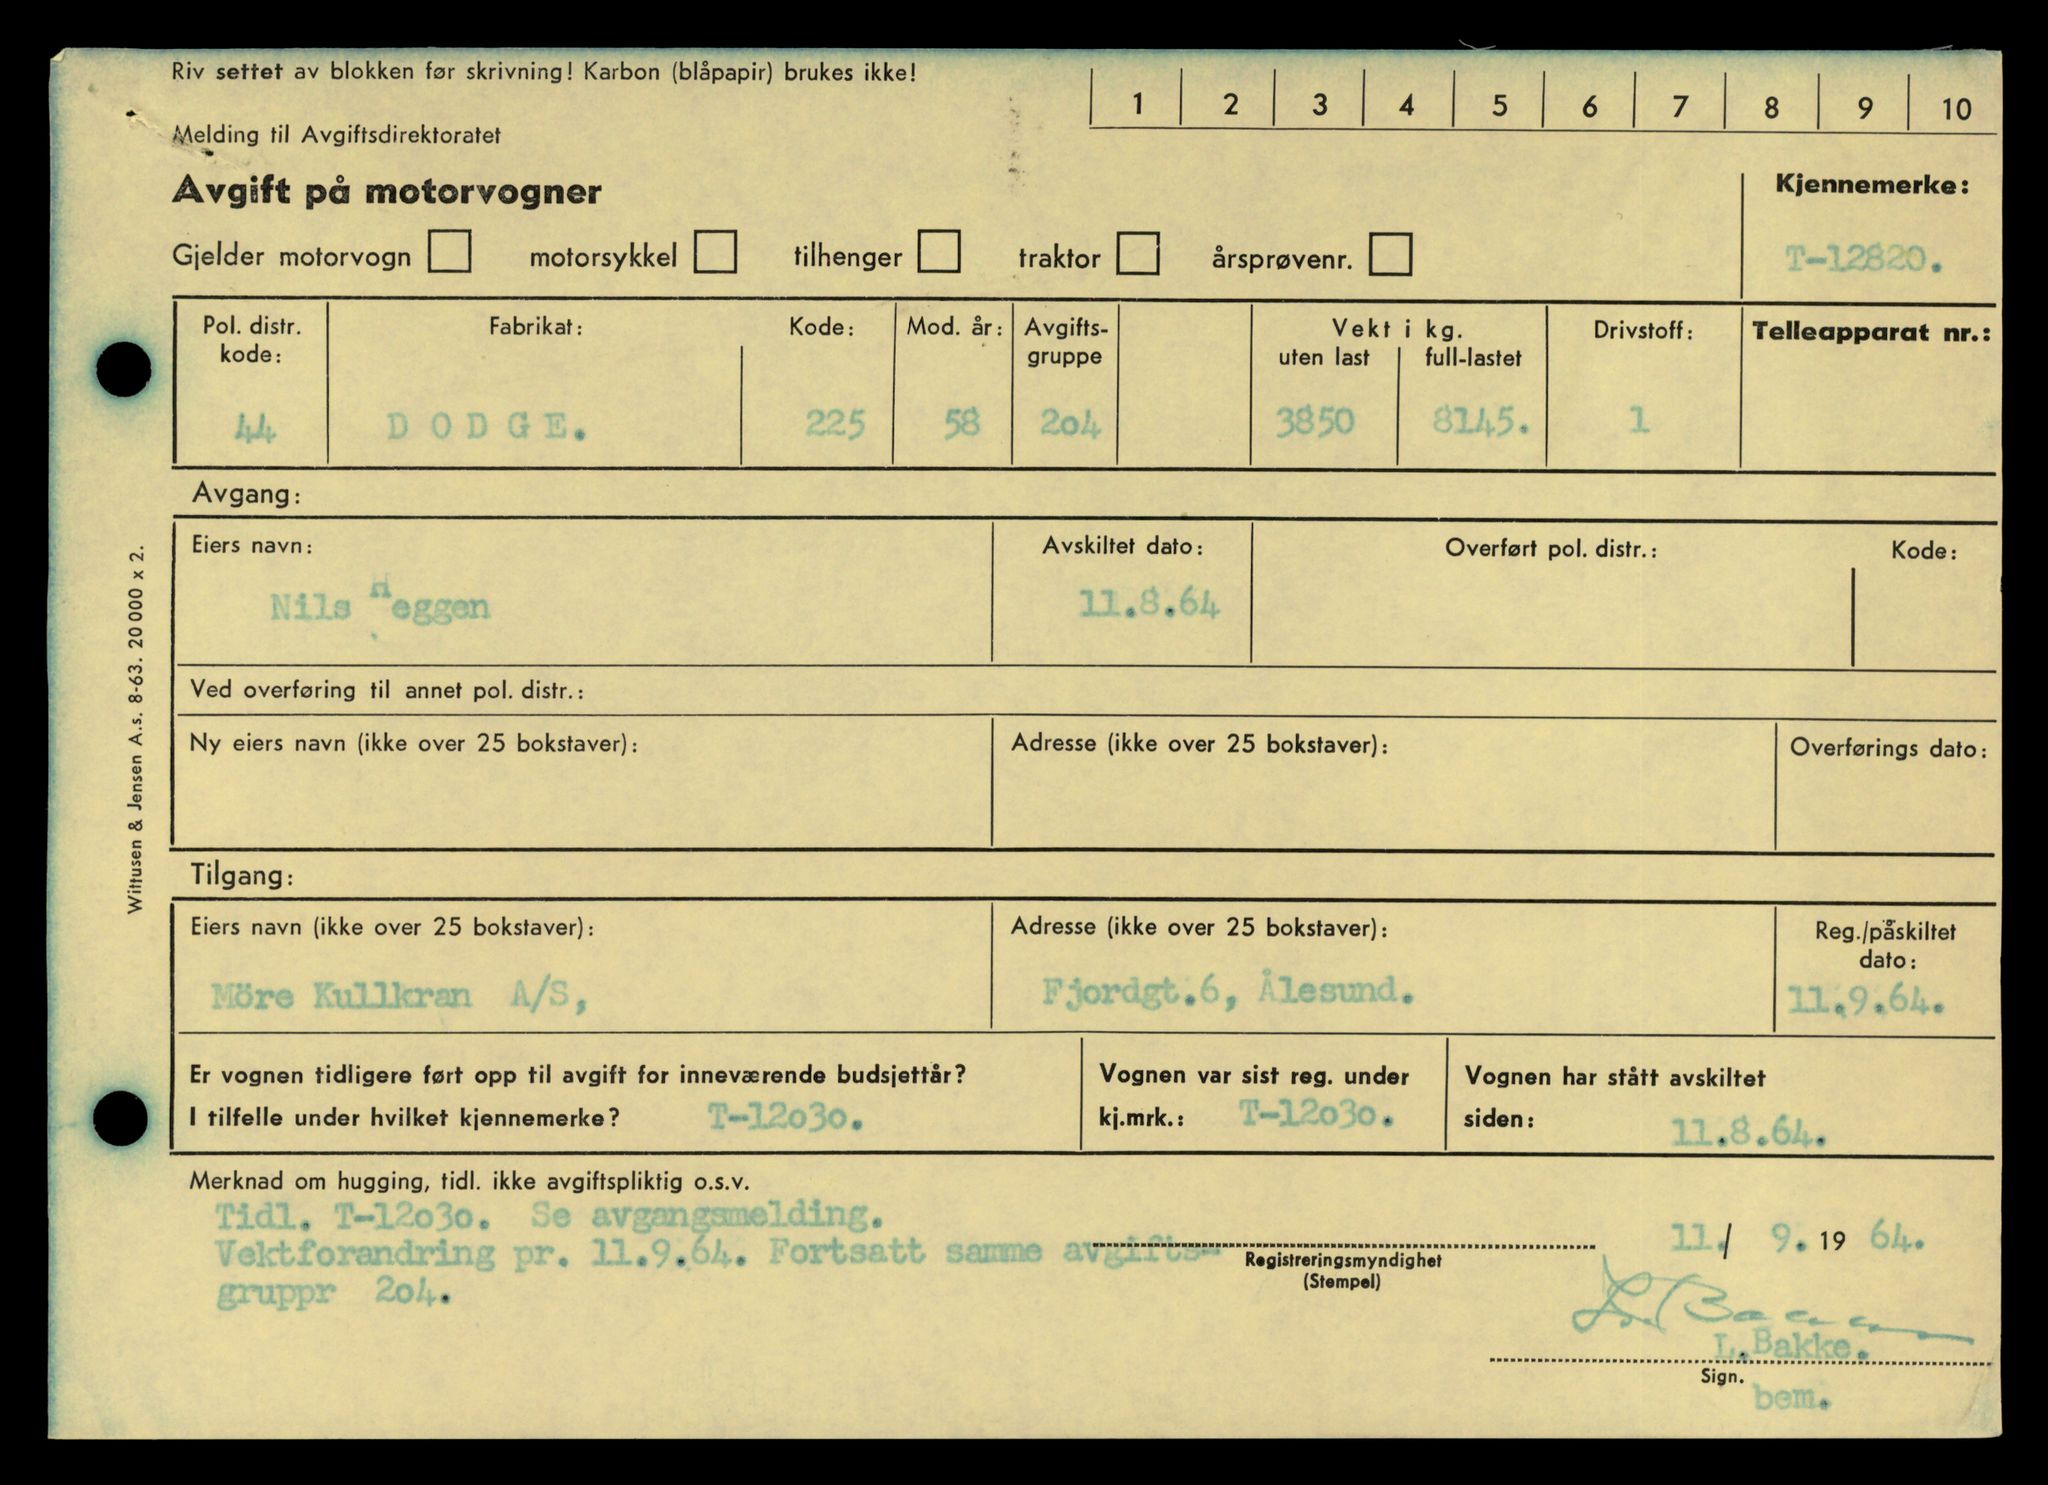 Riv settet av blokken før skrivning! Karbon (blåpapir) brukes ikke!
1 2 3 4 5 6 7 8 9 10
Melding til Avgiftsdirektoratet
Avgift på motorvogner
Kjennemerke:
Gjelder motorvogn motorsykkel tilhenger traktor årsprøvenr.
T-12820.
Pol. distr. kode:
Fabrikat:
Kode:
Mod. år:
Avgifts-
gruppe
Vekt i kg.
uten last full-lastet
Drivstoff:
Telleapparat nr.:
44 DODGE. 225 58 2o4 3850 8145. 1
Avgang:
Eiers navn: Avskiltet dato: Overført pol. distr.: Kode:
Nils Heggen 11.8.64
Ved overføring til annet pol. distr.:
Ny eiers navn (ikke over 25 bokstaver): Adresse (ikke over 25 bokstaver): Overførings dato:
Tilgang:
Eiers navn (ikke over 25 bokstaver): Adresse (ikke over 25 bokstaver): Reg./påskiltet
dato:
Möre Kullkran A/S, Fjordgt.6, Ålesund. 11.9.64.
Er vognen tidligere ført opp til avgift for inneværende budsjettår?
I tilfelle under hvilket kjennemerke? T-12o3o.
Vognen var sist reg. under
kj.mrk.: T-12o3o.
Vognen har stått avskiltet
siden: 11.8.64.
Merknad om hugging, tidl. ikke avgiftspliktig o.s.v.
Tidl. T-12o3o. Se avgangsmelding.
Vektforandring pr. 11.9.64. Fortsatt samme avgifts-
gruppr 2o4.
Registreringsmyndighet
(Stempel)
11./ 9. 19 64.
L. Bakke
L.Bakke.
Sign.
bem.
Wittusen & Jensen A.s. 8-63. 20 000 x 2.